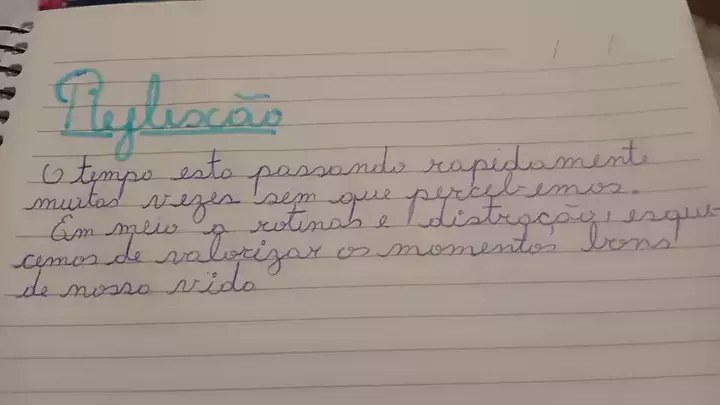 Reflexão
O tempo esta passando rapidamente
muitas vezes sem que percebemos.
Em meio a rotinas e distração, esque-
cemos de valorizar os momentos bons
de nossa vida